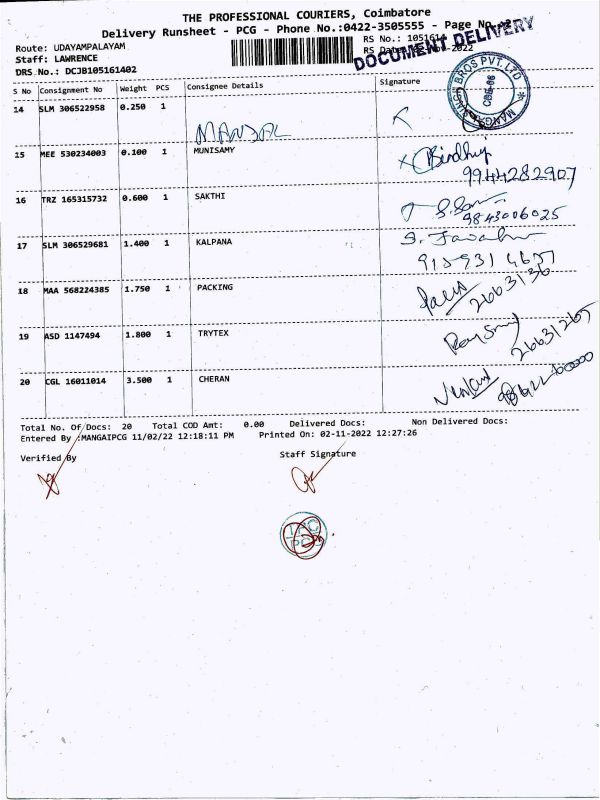 THE PROFESSIONAL COURIERS, Coimbatore
Delivery Runsheet - PCG - Phone No.:0422-3505555 - Page No.
Route: UDAYAMPALAYAM
RS No.:
Staff: LAWRENCE
DOCUMENT DELIVERY
DRS No.: DCJB105161402
BROS PVT. LTD
S No Consignment No Weight PCS Consignee Details Signature
14 SLM 306522958 0.250 1
15 MEE 530234003 0.100 1 MUNISAMY
Bindhu
9944282907
16 TRZ 165315732 0.600 1 SAKTHI
9843006025
17 SLM 306529681 1.400 1 KALPANA
18 MAA 568224385 1.750 1 PACKING
2663136
19 ASD 1147494 1.800 1 TRYTEX
20 CGL 16011014 3.500 1 CHERAN
Total No. Of Docs: 20 Total COD Amt: 0.00 Delivered Docs: Non Delivered Docs:
Entered By :MANGAIPCG 11/02/22 12:18:11 PM Printed On: 02-11-2022 12:27:26
Verified By Staff Signature